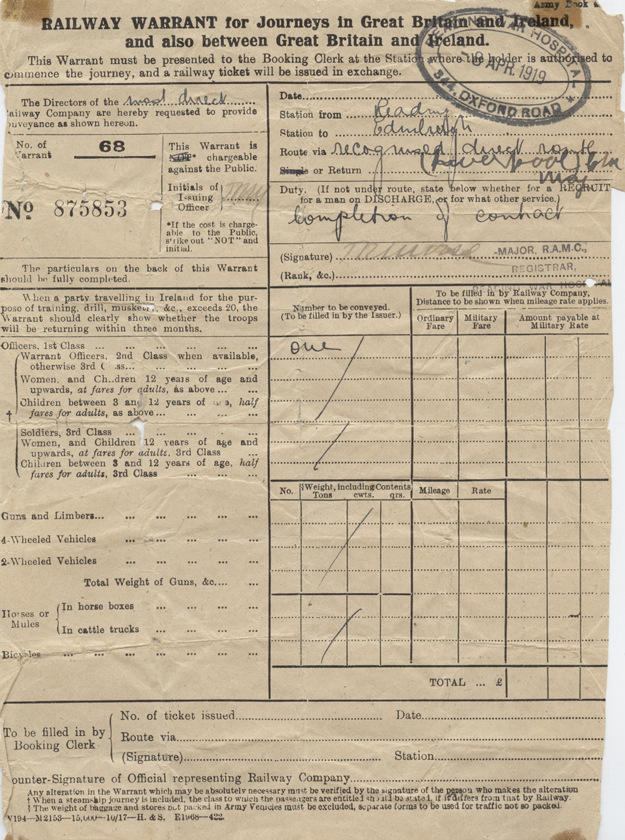 Army Book
RAILWAY WARRANT for Journeys in Great Britain and Ireland,
and also between Great Britain and Ireland.
This Warrant must be presented to the Booking Clerk at the Station where the holder is authorised to
commence the journey, and a railway ticket will be issued in exchange.
WAR HOSPITAL
APR. 1919
OXFORD ROAD
The Directors of the most direct
Railway Company are hereby requested to provide
conveyance as shown hereon.
No. of
Warrant
68
This Warrant is
NOT* chargeable
against the Public.
Initials of
Issuing
Officer
No 875853
*If the cost is charge-
able to the Public,
strike out "NOT" and
initial.
The particulars on the back of this Warrant
should be fully completed.
Date
Station from Reading
Station to Edinburgh
Route via recognised direct route
Single or Return (Liverpool)
Duty. (If not under route, state below whether for a RECRUIT
for a man on DISCHARGE, or for what other service.)
Completion of contract
(Signature)
-MAJOR, R.A.M.C.,
REGISTRAR,
(Rank, &c.)
When a party travelling in Ireland for the pur-
pose of training, drill, musketry, &c., exceeds 20, the
Warrant should clearly show whether the troops
will be returning within three months.
Number to be conveyed.
(To be filled in by the Issuer.)
To be filled in by Railway Company,
Distance to be shown when mileage rate applies.
Ordinary Fare
Military Fare
Amount payable at Military Rate
Officers, 1st Class ... one
Warrant Officers, 2nd Class when available,
otherwise 3rd
Women, and Children 12 years of age and
upwards, at fares for adults, as above ...
Children between 3 and 12 years of half
fares for adults, as above ...
†
Soldiers, 3rd Class
Women, and Children 12 years of age and
upwards, at fares for adults, 3rd Class
Children between 3 and 12 years of age, half
fares for adults, 3rd Class
No.
‡Weight, including Contents
Tons cwts. qrs.
Mileage
Rate
Guns and Limbers...
4-Wheeled Vehicles
2-Wheeled Vehicles
Total Weight of Guns, &c....
Horses or
Mules
In horse boxes
In cattle trucks
Bicycles
TOTAL ... £
To be filled in by
Booking Clerk
No. of ticket issued Date
Route via
(Signature) Station
ounter-Signature of Official representing Railway Company
Any alteration in the Warrant which may be absolutely necessary must be verified by the signature of the person who makes the alteration
† When a steamship journey is included, the class to which the passengers are entitled should be stated, if it differs from that by Railway.
‡ The weight of baggage and stores not packed in Army Vehicles must be excluded, separate forms to be used for traffic not so packed.
V194—M2153—15,000—10/17—H. & S. E1968—422.